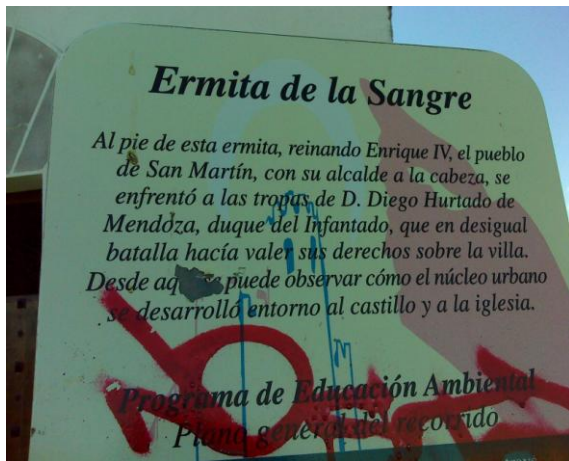 Ermita de la Sangre
Al pie de esta ermita, reinando Enrique IV, el pueblo
de San Martín, con su alcalde a la cabeza, se
enfrentó a las tropas de D. Diego Hurtado de
Mendoza, duque del Infantado, que en desigual
batalla hacía valer sus derechos sobre la villa.
Desde puede observar cómo el núcleo urbano
se desarrolló entorno al castillo y a la iglesia.
Programa de Educación Ambiental
Plano general del recorrido